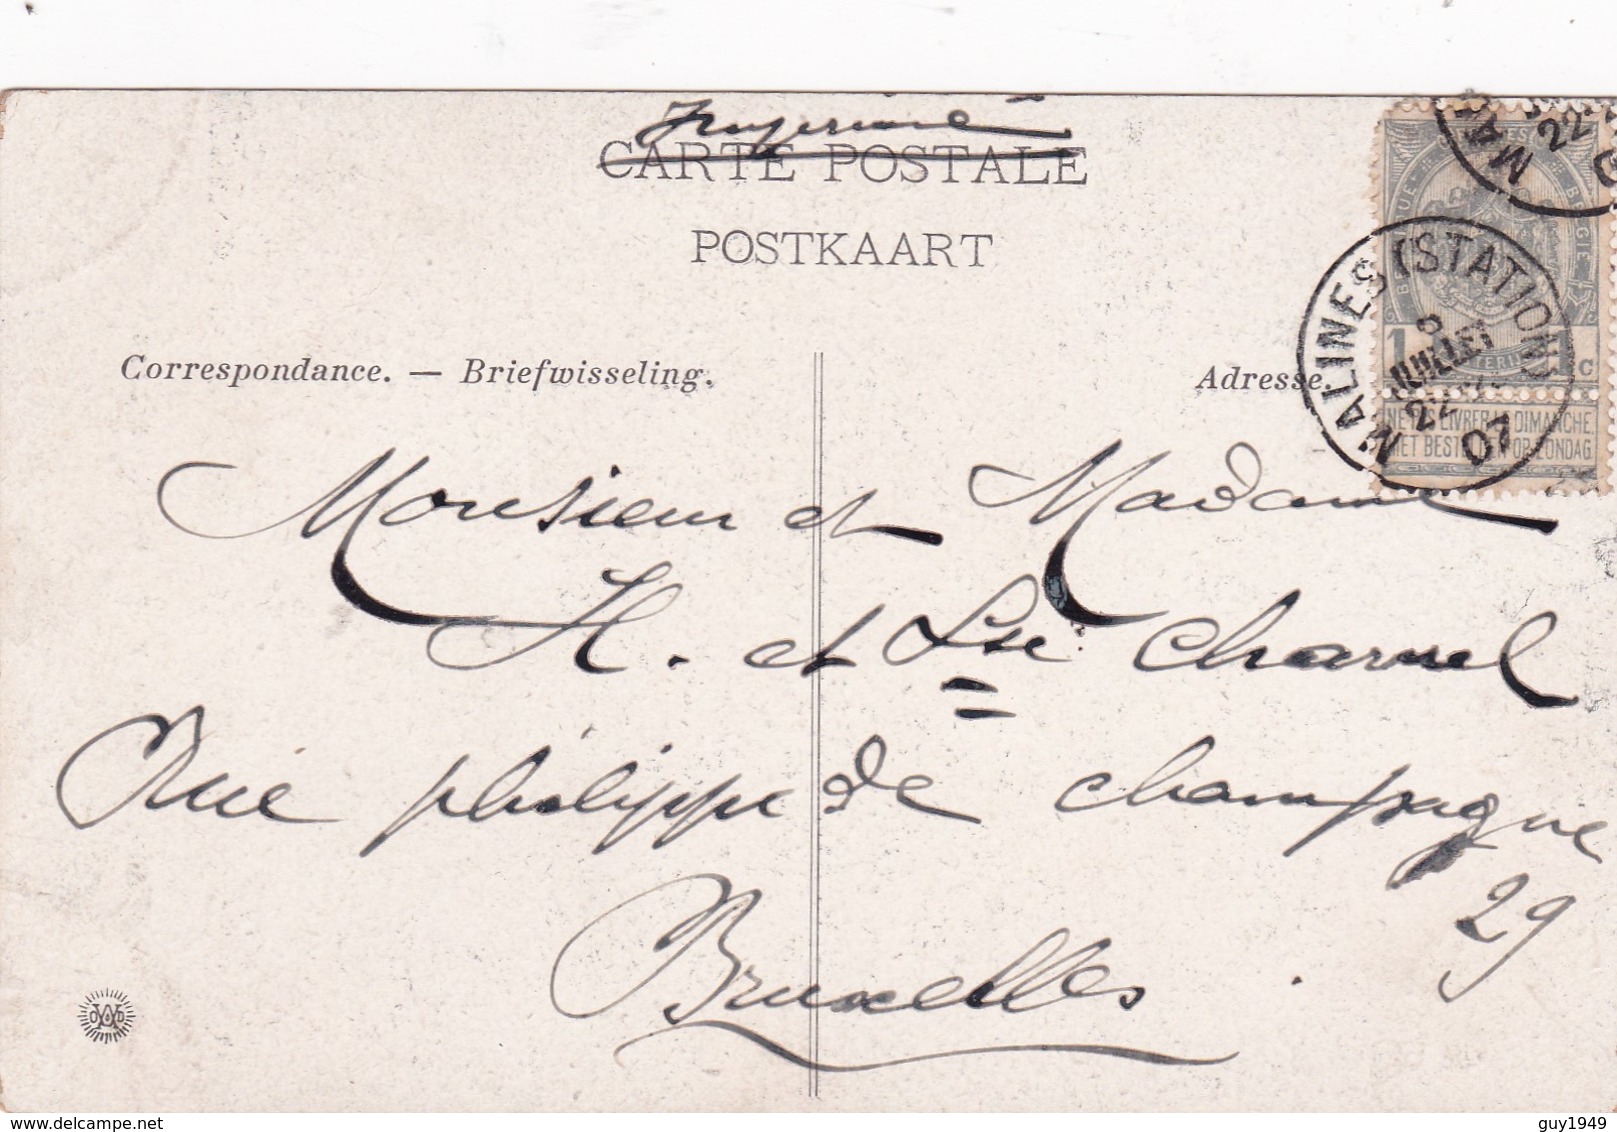 Imprimé
CARTE POSTALE
POSTKAART
Correspondance. — Briefwisseling.
Adresse.
MALINES (STATION)
8
JUILLET
22
07
MA
22
BELGIQUE BELGIE
1 C
NE PAS LIVRER LE DIMANCHE
NIET BESTELLEN OP ZONDAG
Monsieur et Madame
H. et Charnel
Rue philippe de champagne
29
Bruxelles
delcampe.net
guy1949